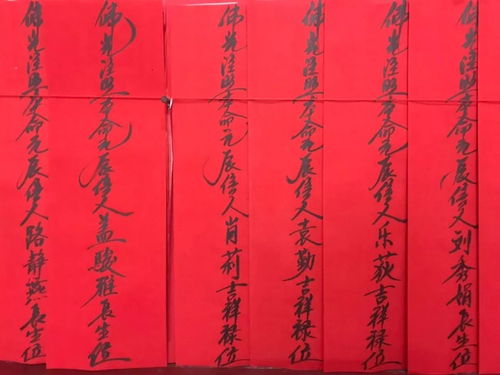 佛光注照本命元辰信人刘秀娟长生位
佛光注照本命元辰信人乐荻吉祥禄位
佛光注照本命元辰信人袁勤吉祥禄位
佛光注照本命元辰信人肖莉吉祥禄位
佛光注照本命元辰信人盖骏雅长生位
佛光注照本命元辰信人路静燕长生位